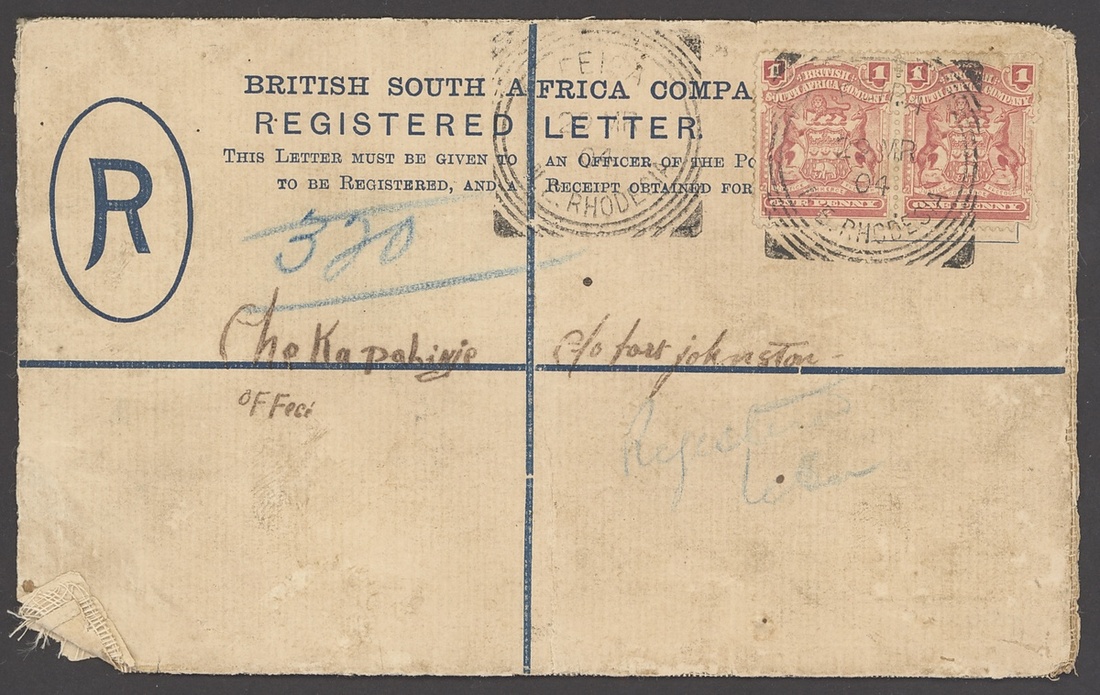 BRITISH SOUTH AFRICA COMPA
REGISTERED LETTER.
THIS LETTER MUST BE GIVEN TO AN OFFICER OF THE PO
TO BE REGISTERED, AND A RECEIPT OBTAINED FOR
R
FEIRA
04
RHODESIA
1 1
BRITISH
SOUTH AFRICA COMPANY
ONE PENNY
1 1
COMPANY
PENNY
MR
04
RHODESIA
320
Che Kapabinje c/o fort Johnston
OFFece
Registered
Letter